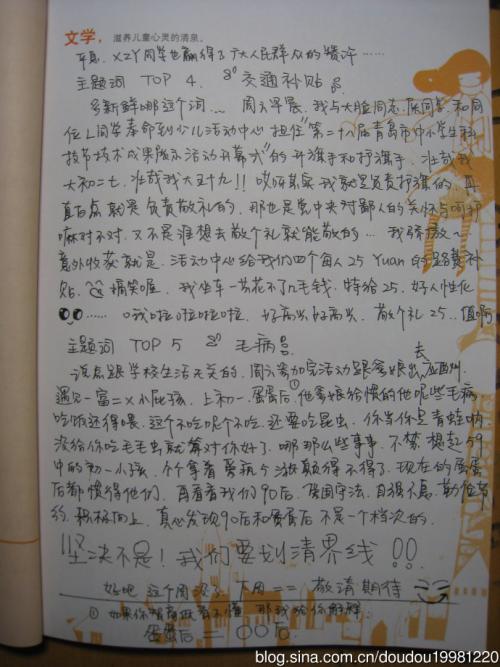 文学，滋养儿童心灵的清泉。
平息，XZY同学也赢得了广大人民群众的赞许……
主题词 TOP 4. 交通补贴
多新鲜哪这个词… 周六早晨，我与大脸同志、陈同志和同
位L同学奉命到少儿活动中心担任“第二十八届青岛市中小学生科
技节技术成果展示活动开幕式”的升旗手和护旗手，谁哉我
大初二七，谁哉我大五十九!! 哎呀其实我就是负责护旗的，再
直白点就是负责敬礼的，那也是党中央对鄙人的关怀与呵护
嘛对不对，又不是谁想去敬个礼就能敬的… 我骄傲~
意外收获就是，活动中心给我们四个每人25 Yuan的路费补
贴，搞笑喔，我坐车一共花不了几毛钱，特给25，好人性化
……啦啦啦啦啦，好高兴好高兴，敬个礼25，值啊
主题词 TOP 5 毛病
说点跟学校生活无关的，周六参加完活动跟爹娘出去，
遇见一富二×小屁孩，上初一，蛋蛋后①，他爹娘给惯的他呢些毛病
吃饭还得喂，这个不吃呢个不吃，还要吃昆虫，你当你是青蛙呐
没给你吃毛毛虫就算对你好了，哪那么些事事，不禁想起59
中的初一小孩，个个拿着得不得了，现在的蛋蛋
后都惯得他们，再看看我们90后，强国守法，自强不息，勤俭节
约，积极向上，真心发现90后和蛋蛋后不是一个档次的，
坚决不是！我们要划清界线!!
好吧 这个周没了 下周== 敬请期待
① 如果你智商跟着不懂 那我给你解释：
蛋蛋后＝00后.
blog.sina.com.cn/doudou19981220